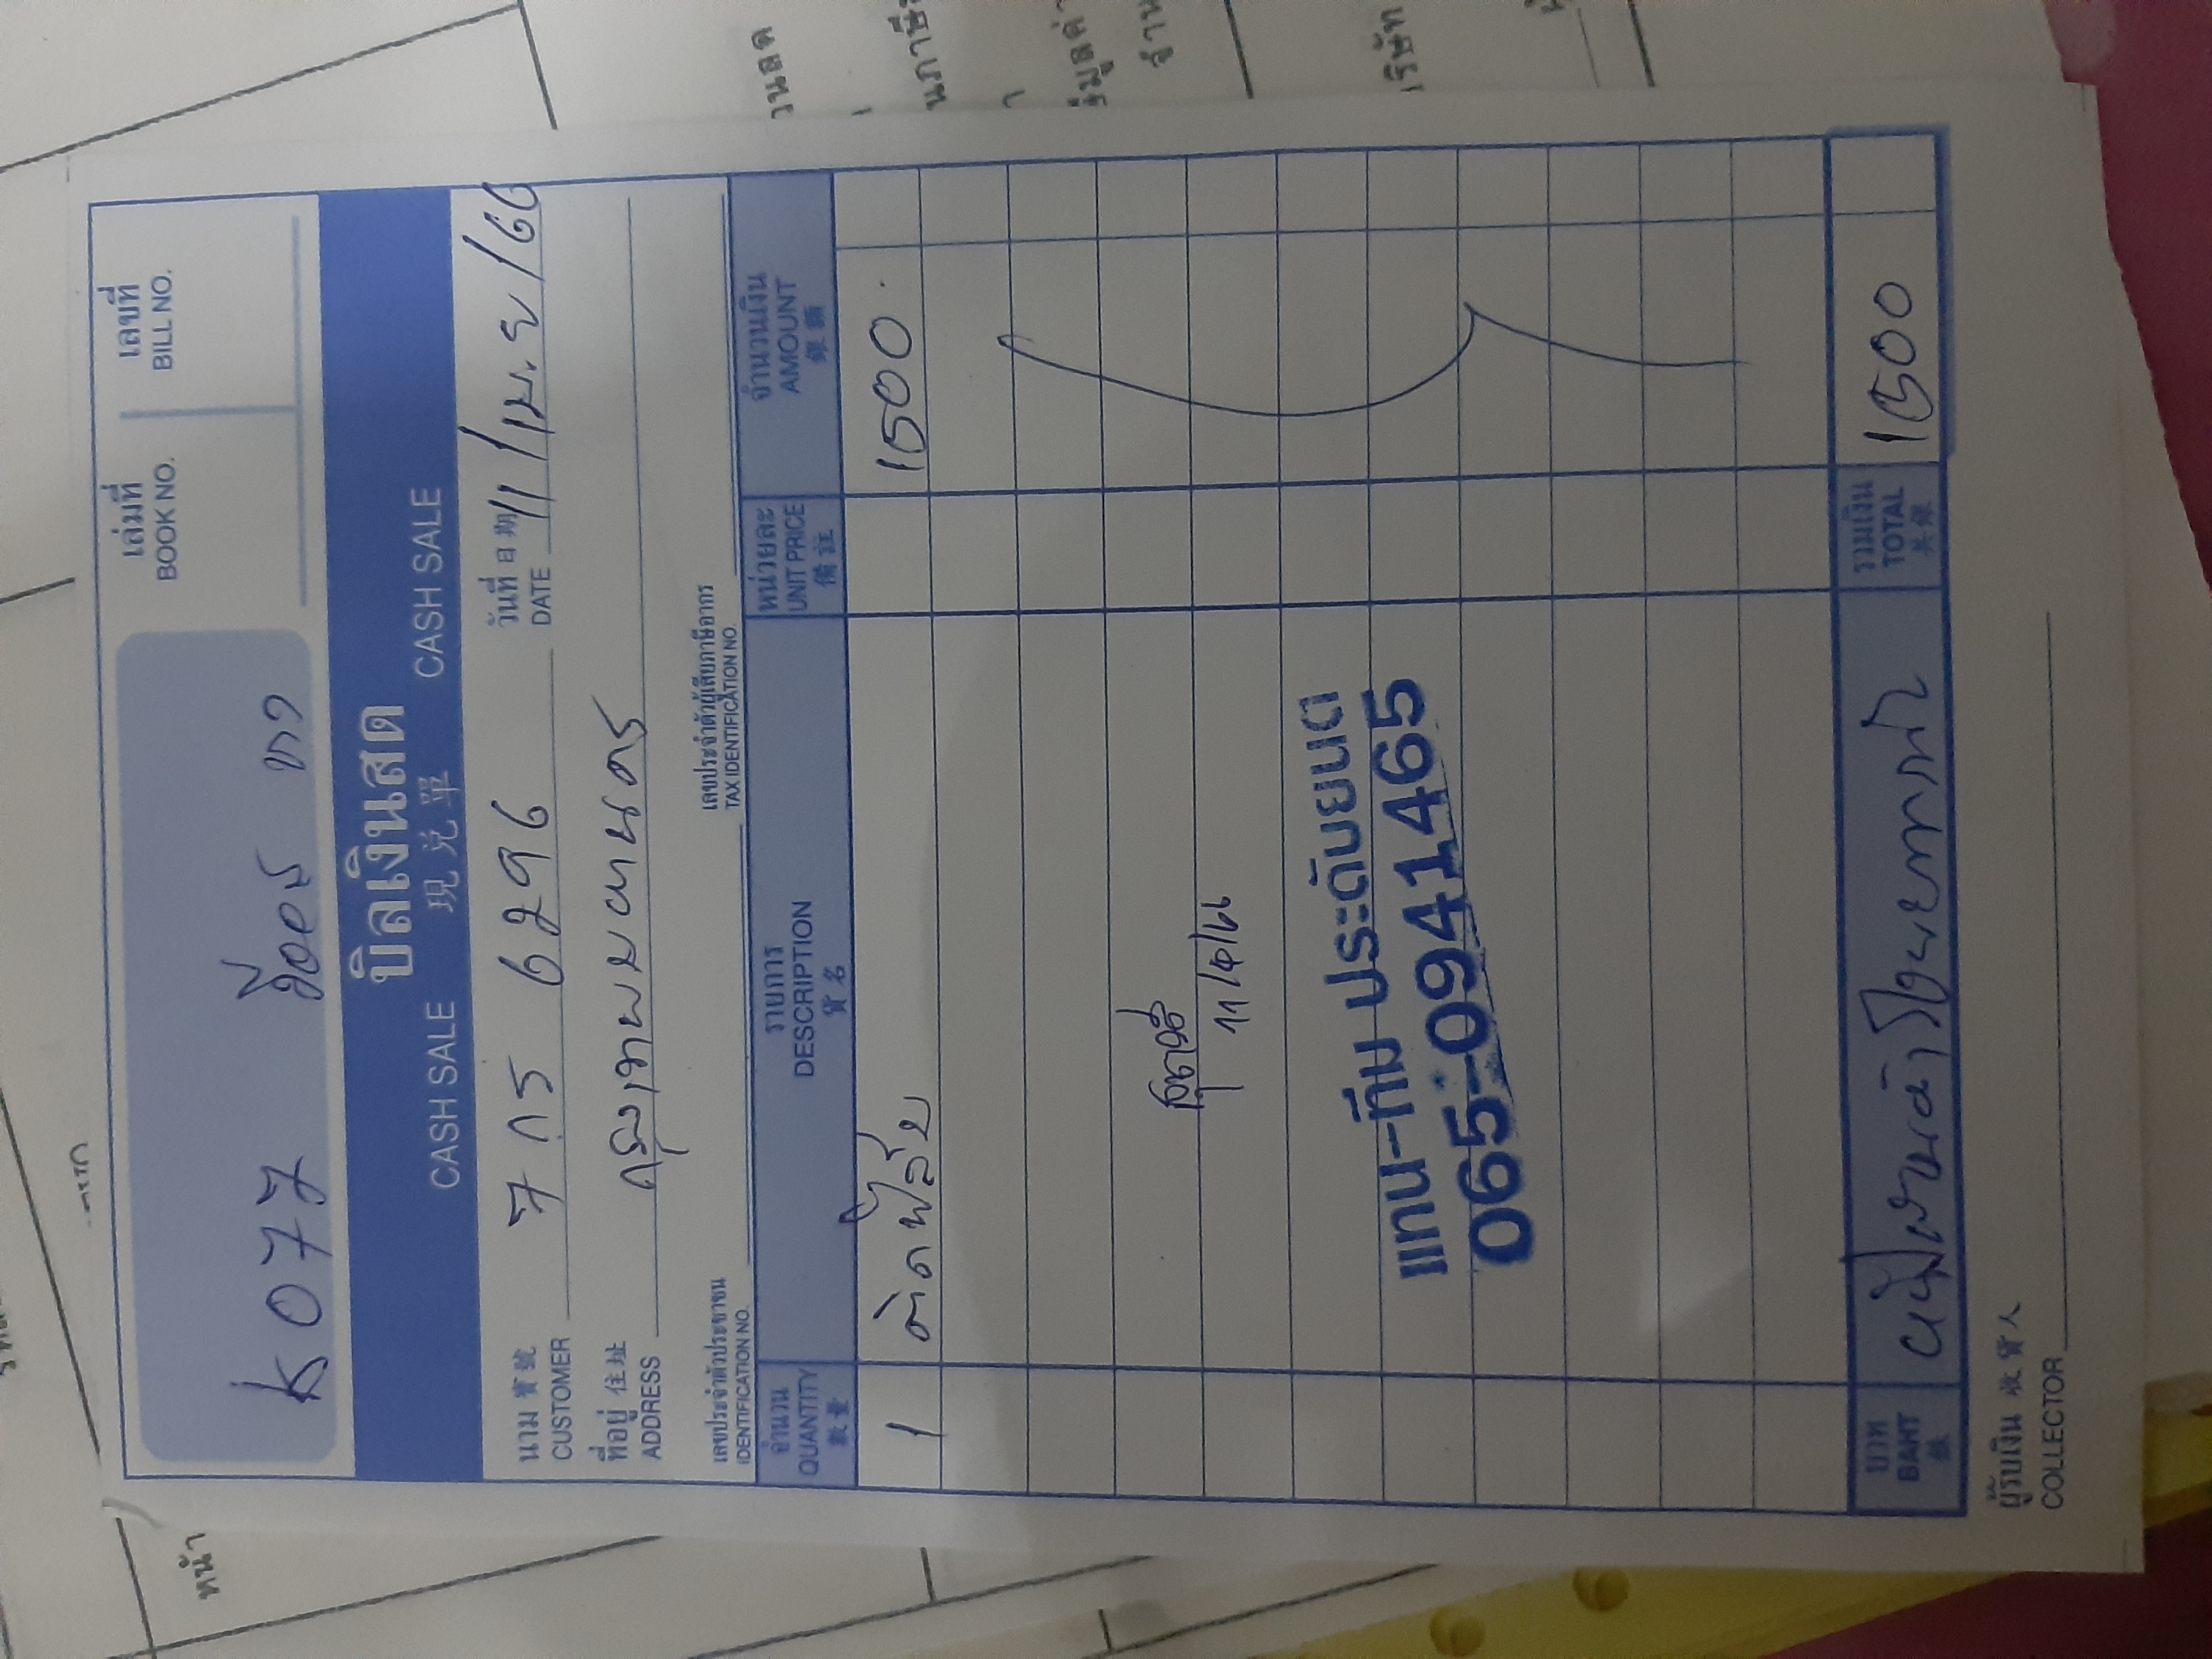 เล่มที่ เลขที่
BOOK NO. BILL NO.
K077
บิลเงินสด
CASH SALE 現兌單 CASH SALE
นาม 寶號 วันที่ 日期
CUSTOMER 7 กร 6296 DATE 11/เม.ย/66
ที่อยู่ 住址
ADDRESS กรุงเทพมหานคร
เลขประจำตัวประชาชน เลขประจำตัวผู้เสียภาษีอากร
IDENTIFICATION NO. TAX IDENTIFICATION NO.
จำนวน รายการ หน่วยละ จำนวนเงิน
QUANTITY DESCRIPTION UNIT PRICE AMOUNT
數量 貨名 備註 銀額
1 ติดฟิล์ม 1500
11/4/66
แทน-ทีม ประดับยนต์
065-0941465
บาท รวมเงิน
BAHT หนึ่งพันห้าร้อยบาทถ้วน TOTAL 1500
銖 共銀
ผู้รับเงิน 收貨人
COLLECTOR
วนลด
ริษัท
หน้า